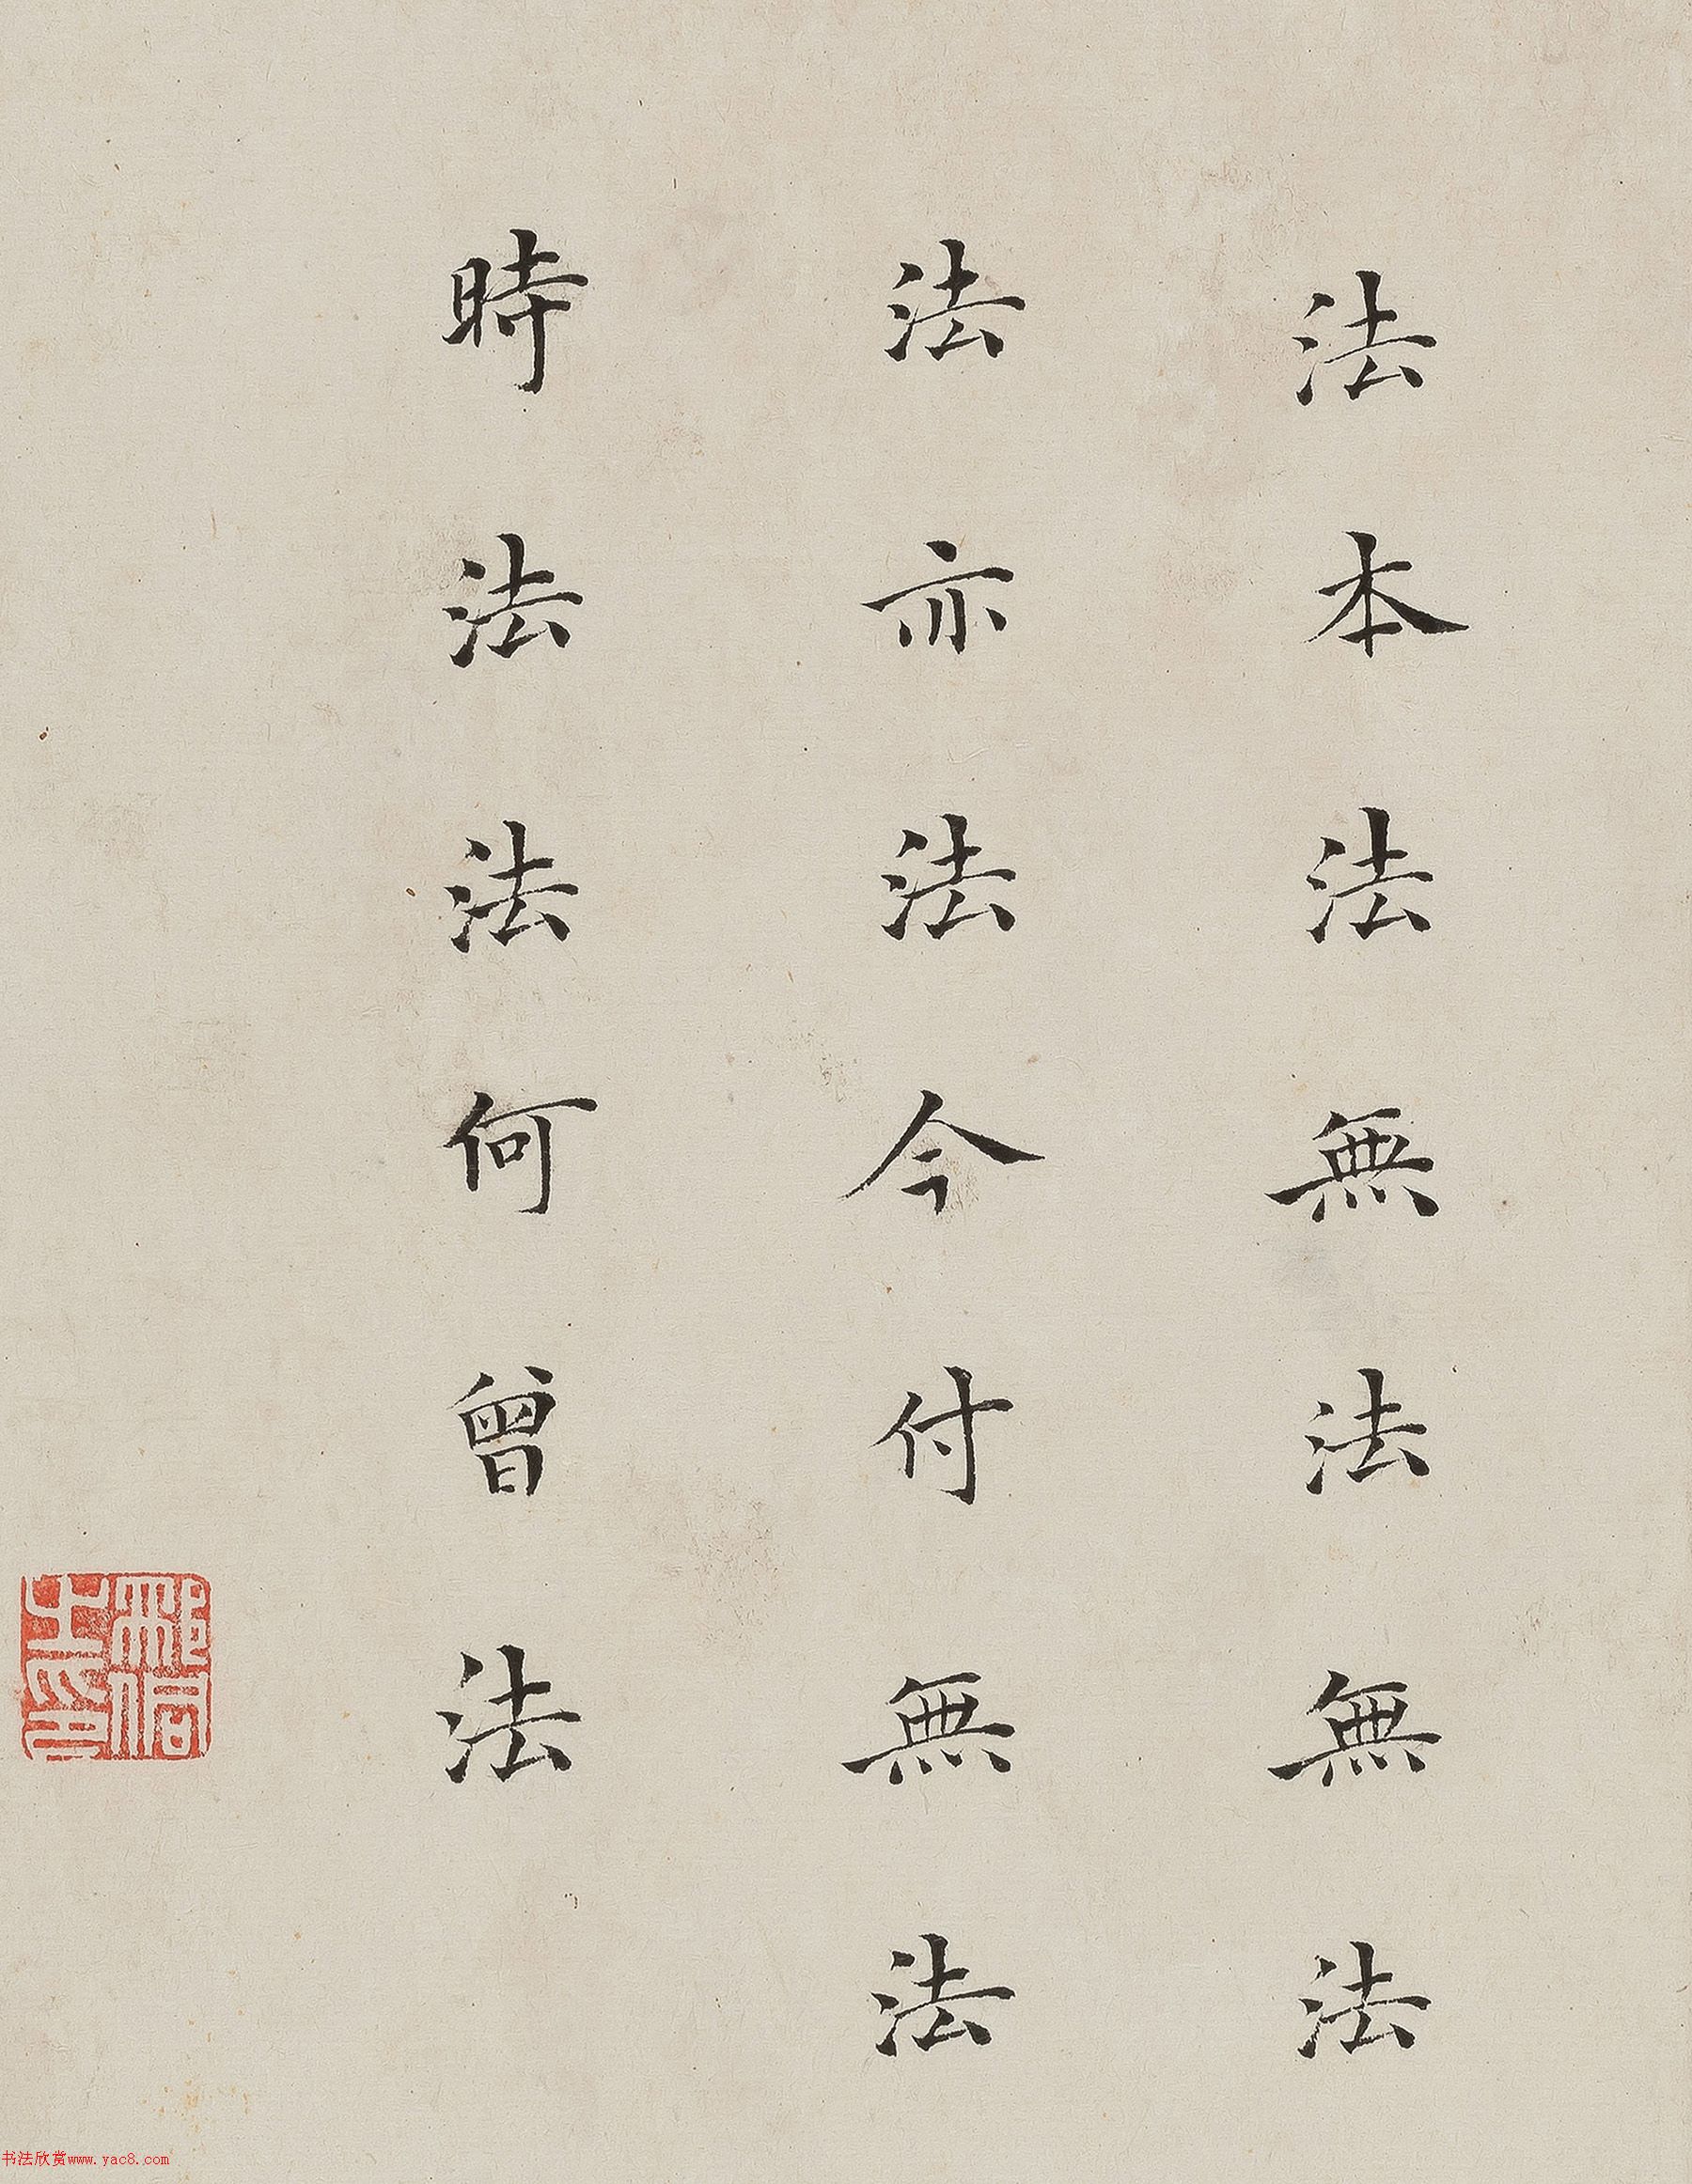 法本法無法無法
法亦法今付無法
時法法何曾法
书法欣赏www.yac8.com